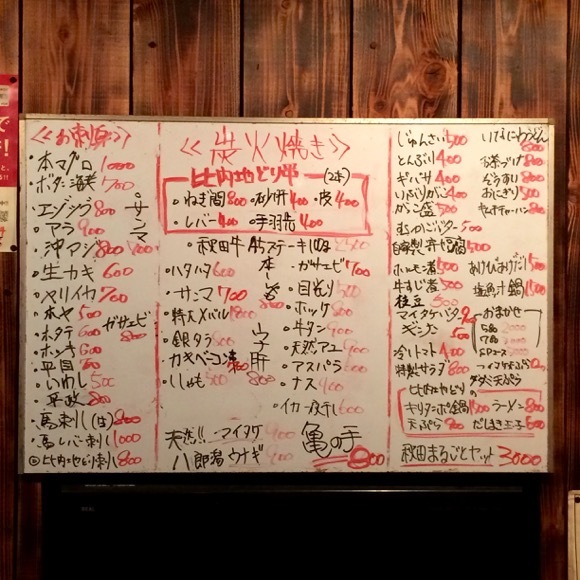 <<お刺身>>
・本マグロ 1000
・ボタン海老 700
・サンマ
・エンジョウ 800
・アラ 900
・沖アジ 800
・生カキ 600
・ヤリイカ 700
・ホヤ 500
ガサエビ
・ホタテ 600
・ホッキ 600
・平目 500
・いわし 500
・平政 800
・馬刺し(はつ) 800
・馬レバー刺し 1000
◎比内地どり刺し 800
<<炭火焼き>>
比内地どり串 (2本)
・ねぎ間 800 ・砂肝 400 ・皮 400
・レバー 400 ・手羽先 400
・ハタハタ 600
・サンマ 700
・特大メバル 1800
・銀ダラ
・カキベーコン
・ししゃも 500
・ガサエビ 700
・目光り 500
・ホッケ 800
・牛タン 900
・天然アユ 900
・アスパラ 500
・ナス 400
・イカ一夜干し 600
天然!! マイタケ 900
八郎潟ウナギ 900
亀の手 800
じゅんさい 500
とんぶり 400
ギバサ 400
いぶりがっこ 400
がっこ盛 500
自家製寄せ豆腐 500
ホルモン煮 500
牛すじ煮 500
枝豆 500
マイタケバター 900
冷しトマト 400
特製サラダ 800
いなにわうどん 800
お茶づけ 800
ぞうすい 800
おにぎり 500
キムチチャーハン 800
塩魚汁鍋 1500
おまかせ
5品 2000
7品 3000
5Pコース 5000
比内地どりの
キリタンポ鍋 1500 ラーメン 800
天ぷら 800 だしまき玉子 500
秋田まるごとセット 3000